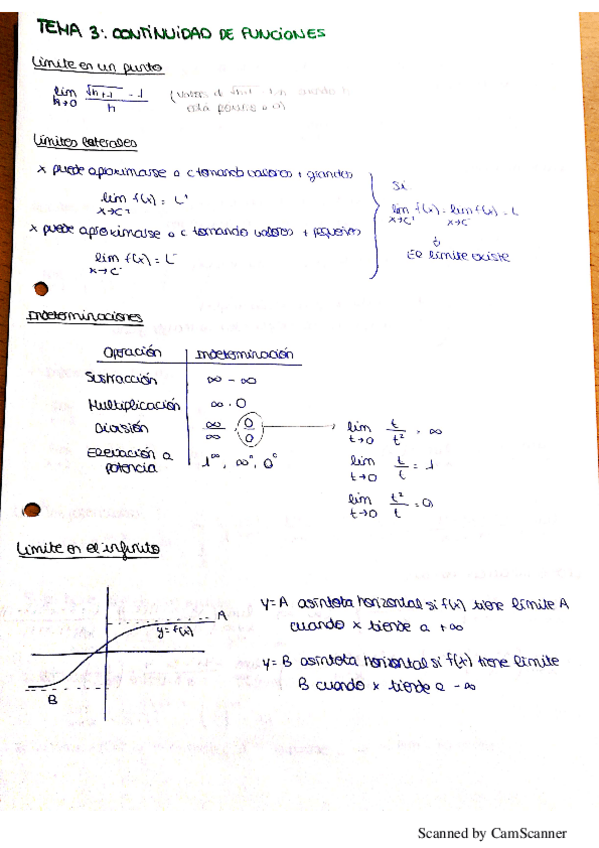 TEMA 3: CONTINUIDAD DE FUNCIONES
Límite en un punto
lim h→0 (√(h+1) - 1)/h
(valores √h+1 - 1/h cuando h
está próximo a 0)
Límites laterales
x puede aproximarse a c tomando valores + grandes
lim x→c⁺ f(x) = L⁺
x puede aproximarse a c tomando valores + pequeños
lim x→c⁻ f(x) = L⁻
Si
lim x→c⁺ f(x) = lim x→c⁻ f(x) = L
↓
El límite existe
Indeterminaciones
Operación | Indeterminación
Sustracción | ∞ - ∞
Multiplicación | ∞ · 0
División | ∞/∞ , 0/0 → lim t→0 t/t² = ∞
lim t→0 t/t = 1
lim t→0 t²/t = 0
Elevación a
potencia | 1^∞, ∞⁰, 0⁰
Límite en el infinito
A
y = f(x)
B
y = A asíntota horizontal si f(x) tiene límite A
cuando x tiende a +∞
y = B asíntota horizontal si f(x) tiene límite
B cuando x tiende a -∞
Scanned by CamScanner